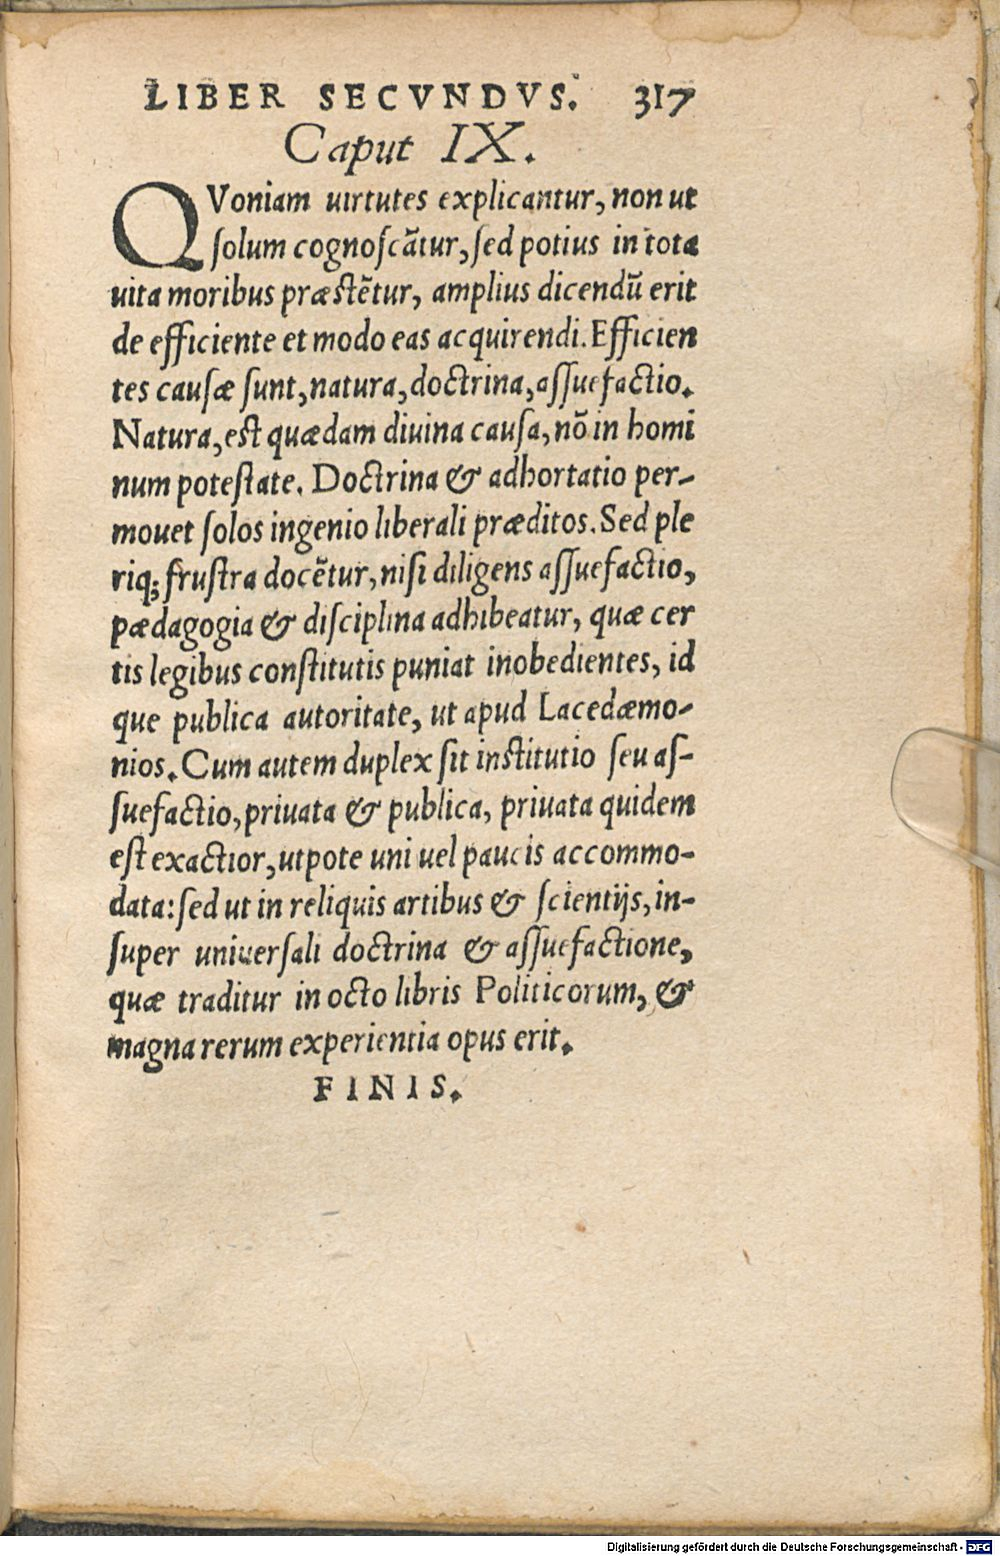 LIBER SECVNDVS. 317
Caput IX.
QVoniam uirtutes explicantur, non ut
ſolum cognoſcãtur, ſed potius in tota
uita moribus præſtẽtur, amplius dicendũ erit
de efficiente et modo eas acquirendi. Efficien
tes cauſæ ſunt, natura, doctrina, aſſuefactio.
Natura, eſt quædam diuina cauſa, nõ in homi
num poteſtate. Doctrina & adhortatio per-
mouet ſolos ingenio liberali præditos. Sed ple
riq; fruſtra docẽtur, niſi diligens aſſuefactio,
pædagogia & diſciplina adhibeatur, quæ cer
tis legibus conſtitutis puniat inobedientes, id
que publica autoritate, ut apud Lacedæmo-
nios. Cum autem duplex ſit inſtitutio ſeu aſ-
ſuefactio, priuata & publica, priuata quidem
eſt exactior, utpote uni uel paucis accommo-
data: ſed ut in reliquis artibus & ſcientijs, in-
ſuper uniuerſali doctrina & aſſuefactione,
quæ traditur in octo libris Politicorum, &
magna rerum experientia opus erit.
FINIS.
Digitalisierung gefördert durch die Deutsche Forschungsgemeinschaft - DFG